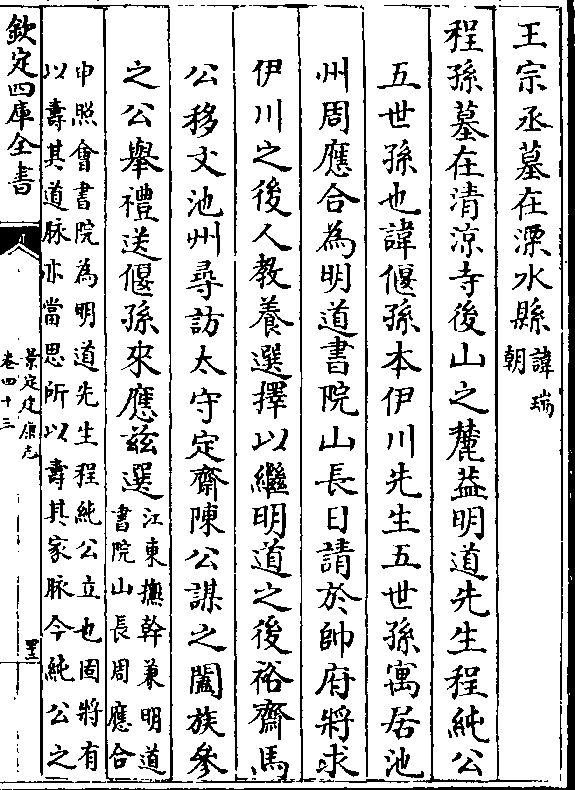 王宗丞墓在溧水縣諱瑞
朝
程孫墓在清涼寺後山之麓葢明道先生程純公
五世孫也諱偃孫本伊川先生五世孫寓居池
州周應合為明道書院山長日請於帥府將求
伊川之後人教養選擇以繼明道之後裕齋馬
公移文池州尋訪太守定齋陳公謀之闔族參
之公舉禮送偃孫來應兹選江東撫幹兼明道
書院山長周應合
申照會書院為明道先生程純公立也固將有
以壽其道脉亦當思所以壽其家脉今純公之
欽定四庫全書
景定建康志
卷四十三